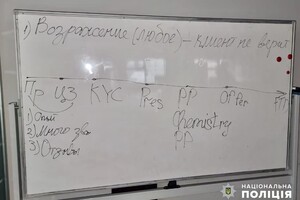 1) Возражение (любое) – клиент не верит
Пр ЦЗ KYC Pres PP Offer FTD
1) Спам
2) Много зво
3) Отзывы
Chemistry
PP
НАЦІОНАЛЬНА
ПОЛІЦІЯ